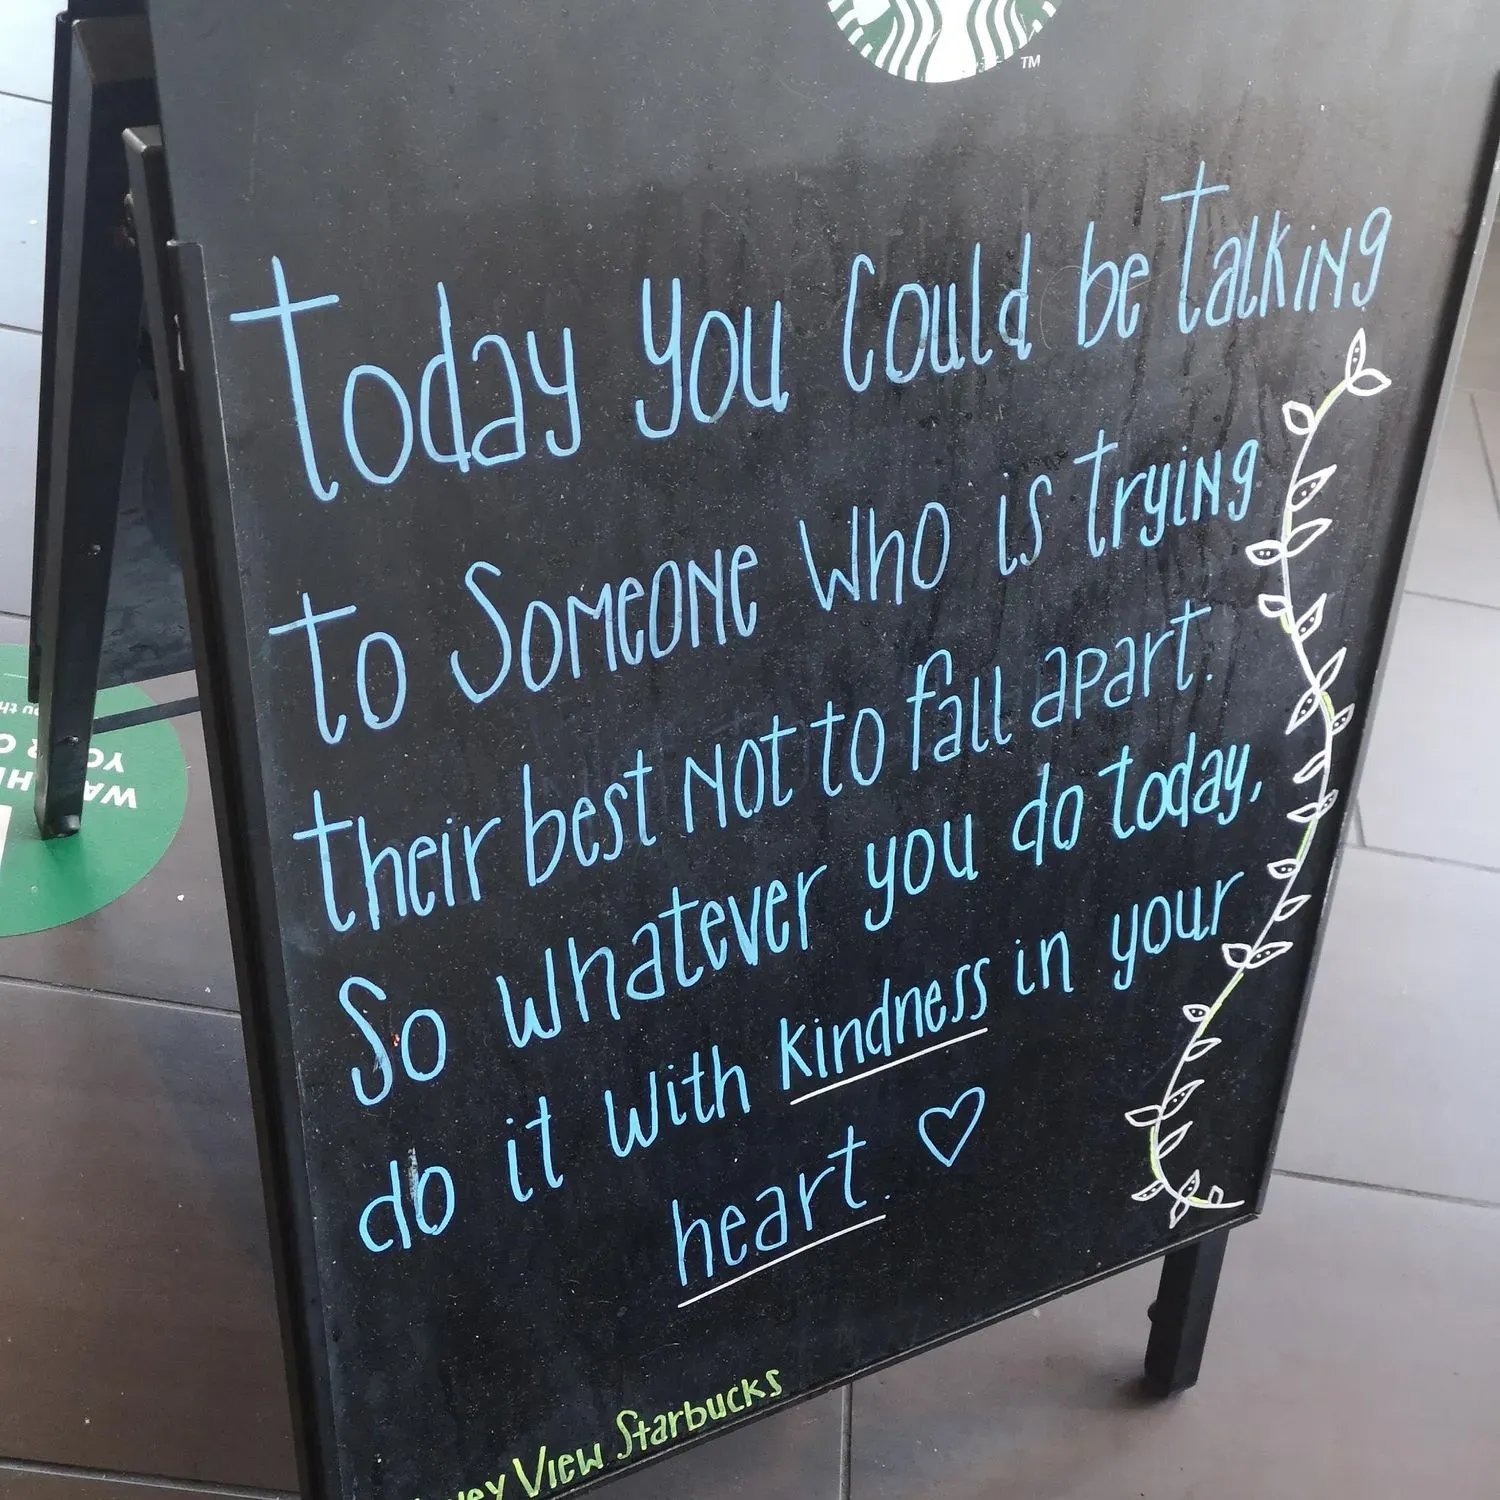 TM
Today you could be talking
to someone who is trying
their best not to fall apart.
So whatever you do today,
do it with kindness in your
heart.
View Starbucks